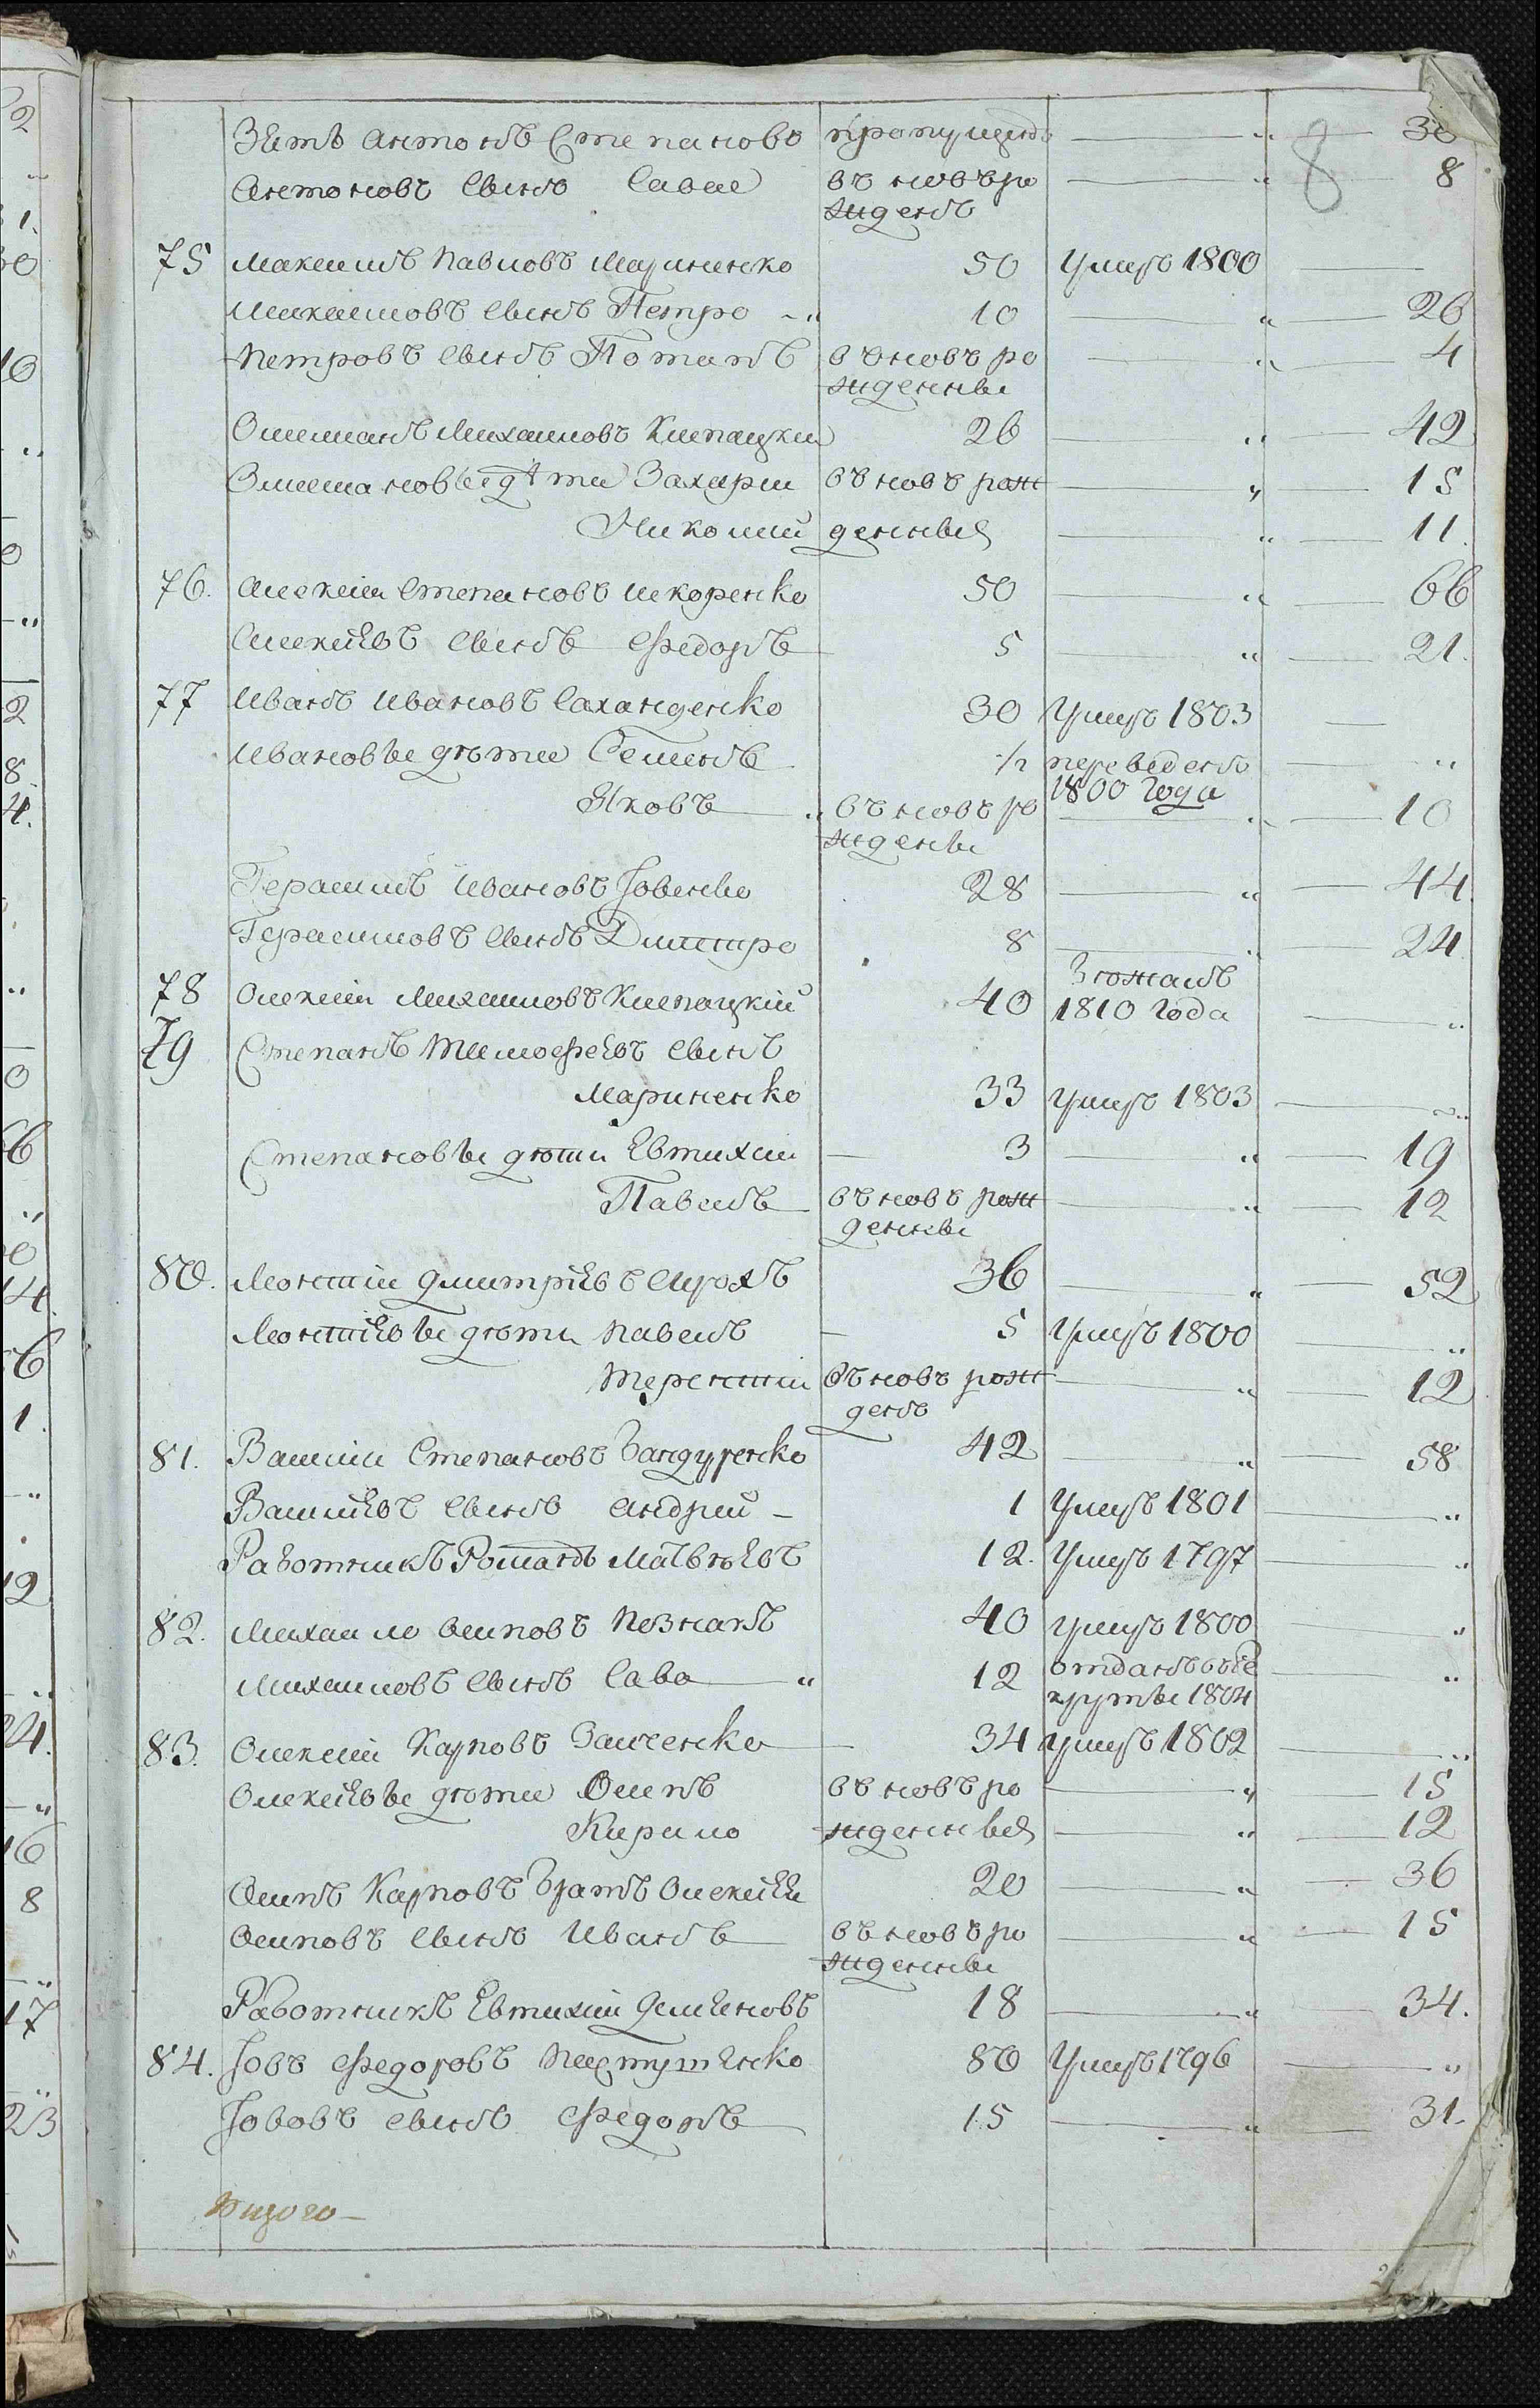 Зять Антонъ Степановъ пропущенъ — " — 30
8
Антоновъ сынъ Сава въ новъ ро — " — 8
жденъ
75 Максимъ Павловъ Мариненко 50 Умеръ 1800 —
Максимовъ сынъ Петро — " 10 — " — 26
Петровъ сынъ Потапъ въ новъ ро — " — 4
жденны
Омелианъ Михаиловъ Клепацкий 26 — " — 42
Омелиановы дѣти Захарии въ новъ рож — " — 15
Николай денныя — " — 11.
76. Алексѣи Степановъ 50 — " — 66
Алексѣевъ сынъ Федоръ 5 — " — 21.
77 Иванъ Ивановъ Саханденко 30 Умеръ 1803 —
Ивановы дѣти Семенъ ½ переведенъ — "
1800 года
Яковъ — " въ новъ ро — " — 10
ждены
Герасимъ Ивановъ Іовенко 28 — " — 44.
Герасимовъ сынъ Дмитро 8 — " — 24.
78 Олексѣи Михаиловъ Клепацкій 40 Згожанъ
1810 года — "
79 Степанъ Тимофеевъ сынъ
Мариненко 33 умеръ 1803 — "
Степановы дѣти Евтихии — 3 — " — 19
Павелъ въ новъ рож — " — 12
денны
80. Леонтіи Дмитріевъ 36 — " — 52
Леонтіевы дѣти Павелъ — 5 Умеръ 1800 — "
Терентіи въ новъ рож — " — 12
денъ
81. Василіи Степановъ Бандуренко 42 — " — 58
Василіевъ сынъ Андрей — 1 Умеръ 1801 — "
Работникъ Романъ Матвѣевъ 12. Умеръ 1797 — "
82. Михаило Осиповъ Познакъ 40 умеръ 1800 — "
Михаиловъ сынъ Сава — " 12 отданъ въ ре — "
круты 1804
83. Олексѣи Карповъ Заиченко — 34 умеръ 1802 — "
Олексѣевы дѣти Осипъ въ новъ ро — " — 15
Кирило жденныя — " — 12
Осипъ Карповъ братъ Олексѣя 20 — " — 36
Осиповъ сынъ Иванъ въ новъ ро — " — 15
жденны
Работникъ Евтихии Демяновъ 18 — " — 34.
84. Іовъ Федоровъ 80 Умеръ 1796 — "
Іововъ сынъ Федоръ 15 — " — 31.